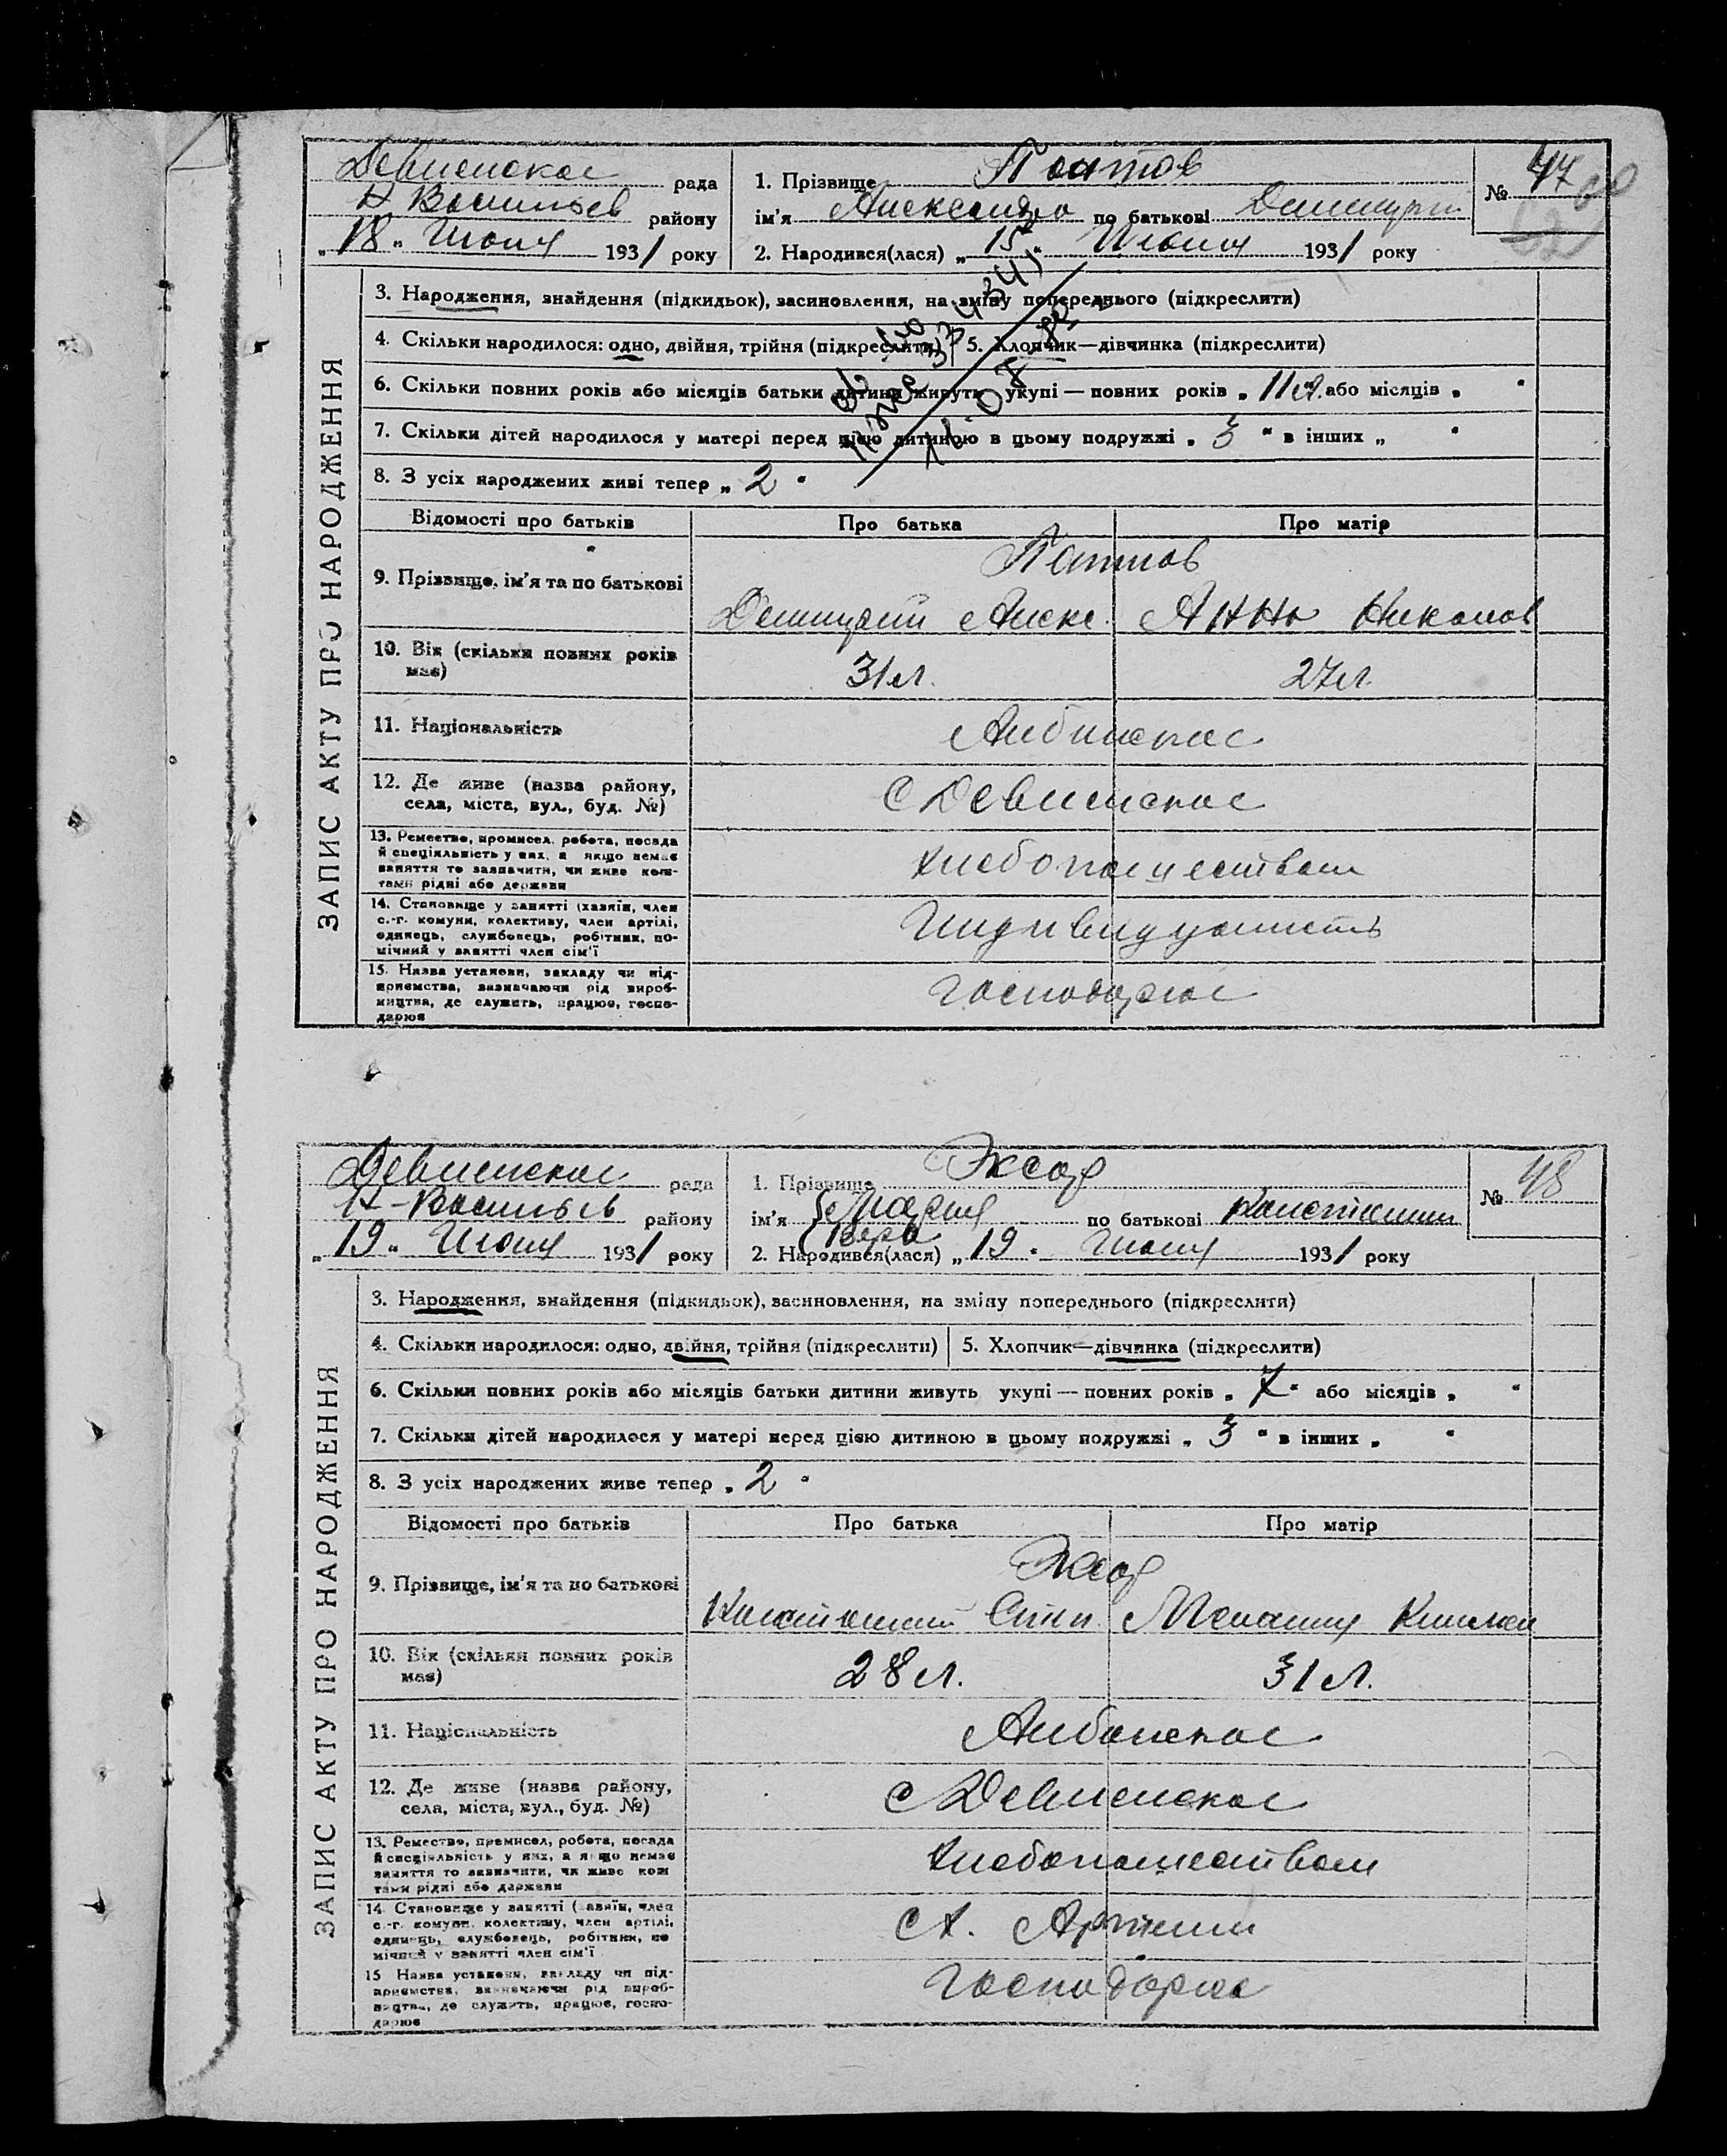 Девненское рада
Н Васильев району
„18„ Июня 1931 року
1. Прізвище Паптов
ім'я Александр по батькові Дмитрий
2. Народився(лася) „15„ Июня 1931 року
№ 47
60
3. Народження, знайдення (підкидьок), засиновлення, на зміну попереднього (підкреслити)
4. Скільки народилося: одно, двійня, трійня (підкреслити) 5. Хлопчик—дівчинка (підкреслити)
6. Скільки повних років або місяців батьки дитини живуть укупі — повних років „ 11 л. або місяців „ "
7. Скільки дітей народилося у матері перед цією дитиною в цьому подружжі „ 3 " в інших „ "
8. З усіх народжених живі тепер „ 2 "
Відомості про батьків Про батька Про матір
9. Прізвище, ім'я та по батькові
Паптов
Дмитрий Алекс. Анна Николов
10. Вік (скільки повних років має) 31 л. 27 л.
11. Національність Албанское
12. Де живе (назва району,
села, міста, вул., буд. №) С Девненское
13. Ремество, промисел, робота, посада
й спеціальність у них, а якщо немає
заняття то зазначити, чи живе кош-
тами рідні або держави
хлебопашеством
14. Становище у занятті (хазяїн, член
с.-г. комуни, колективу, член артілі,
одинець, службовець, робітник, по-
мічний у занятті член сім'ї
15. Назва установи, закладу чи під-
приємства, зазначаючи рід вироб-
ництва, де служить, працює, госпо-
дарює
ЗАПИС АКТУ ПРО НАРОДЖЕННЯ
Девненское рада
Н-Васильев району
„19„ Июня 1931 року
1. Прізвище Эксар
ім'я Мария
Вера
по батькові Константин
2. Народився(лася) „19. Июня 1931 року
№ 48
3. Народження, знайдення (підкидьок), засиновлення, на зміну попереднього (підкреслити)
4. Скільки народилося: одно, двійня, трійня (підкреслити) 5. Хлопчик—дівчинка (підкреслити)
6. Скільки повних років або місяців батьки дитини живуть укупі — повних років „ 7 " або місяців „ "
7. Скільки дітей народилося у матері перед цією дитиною в цьому подружжі „ 3 " в інших „ "
8. З усіх народжених живе тепер „ 2 "
Відомості про батьків Про батька Про матір
9. Прізвище, ім'я та по батькові
Эксар
Константин Степ. Мелания
10. Вік (скільки повних років має) 28 л. 31 л.
11. Національність Албанское
12. Де живе (назва району,
села, міста, вул., буд. №) С Девненское
13. Ремество, промисел, робота, посада
й спеціальність у них, а якщо немає
заняття то зазначити, чи живе кош
тами рідні або держави
хлебопашеством
14. Становище у занятті (хазяїн, член
с.-г. комуни, колективу, член артілі,
одинець, службовець, робітник, по
мічний у занятті член сім'ї
Артели
15 Назва установи, закладу чи під-
приємства, зазначаючи рід вироб-
ництва, де служить, працює, госпо-
дарює
ЗАПИС АКТУ ПРО НАРОДЖЕННЯ